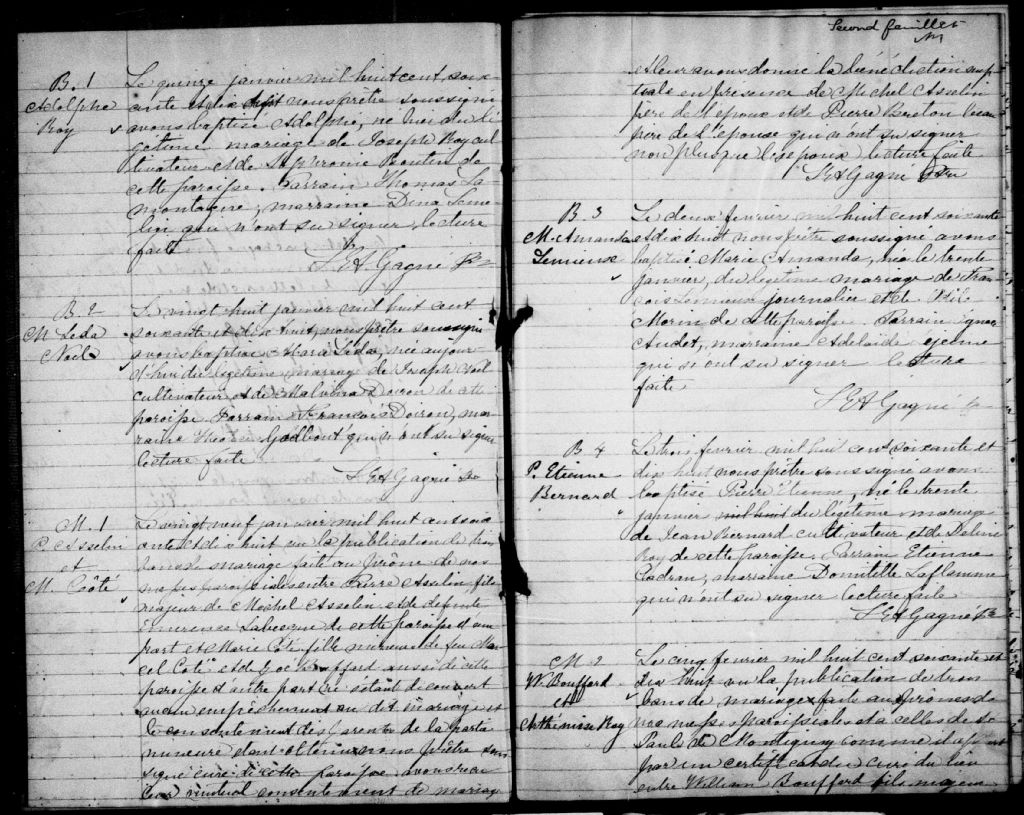 B. 1
Adolphe
Roy
Le quinze janvier mil huit cent soix-
ante et dix huit nous prêtre soussigné
avons baptisé Adolphe, né hier du lé
gitime mariage de Joseph Roy cul
tivateur et de Sophronie Boutin de
cette paroisse. Parrain Thomas La
montagne, marraine Dina Leme
lin qui n'ont su signer, lecture
faite
L E A Gagné Ptre
B. 2
M Leda
Noël
Le vingt huit janvier mil huit cent
soixante et dix huit, nous prêtre soussigné
avons baptisé Maria Leda, née aujour-
d'hui du légitime mariage de Joseph Noël
cultivateur et de Malvina Doiron de cette
paroisse. Parrain François Doiron, mar
raine Godbout qui n'ont su signer
lecture faite
L E A Gagné Ptre
M. 1
P. Asselin
et
M. Côté
Le vingt neuf janvier mil huit cent soix
ante et dix huit vu la publication de trois
bans de mariage faite au prône de nos
messes paroissiales entre Pierre Asselin fils
majeur de Michel Asselin et de défunte
Emerence Labecque de cette paroisse d'une
part et Marie Coté fille mineure de feu Mar
cel Coté et de Bouffard aussi de cette
paroisse d'autre part ne s'étant découvert
aucun empêchement au dit mariage et
le consentement des parents de la partie
mineure dant obtenu nous prêtre sous
signé curé de cette paroisse avons reçu
leur mutuel consentement de mariage
Second feuillet
et leur avons donné la bénédiction nup
tiale en présence de Michel Asselin
père de l'époux et de Pierre Breton beau
père de l'épouse qui n'ont su signer
non plus que les époux lecture faite
L E A Gagné Ptre
B. 3
M. Amanda
Lemieux
Le deux février mil huit cent soixante
et dix huit nous prêtre soussigné avons
baptisé Marie Amanda, née le trente
janvier, du légitime mariage de Fran
cois Lemieux journalier et de
Morin de cette paroisse. Parrain Ignace
Audet, marraine Adelaide
qui n'ont su signer lecture
faite
L E A Gagné Ptre
B. 4
P. Etienne
Bernard
Le trois février mil huit cent soixante et
dix huit nous prêtre soussigné avons
baptisé Pierre Etienne, né le trente
janvier mil huit du légitime mariage
de Jean Bernard cultivateur et de Deline
Roy de cette paroisse. Parrain Etienne
Nadeau, marraine Domitille Laflamme
qui n'ont su signer lecture faite
L E A Gagné Ptre
M. 2
W. Bouffard
et
Arthémise Roy
Le cinq février mil huit cent soixante et
dix huit vu la publication de trois
bans de mariage faite aux prônes de
nos messes paroissiales et a celles de St
Paul de Montigny comme il apert
par un certificat du curé du lieu
entre William Bouffard fils majeur